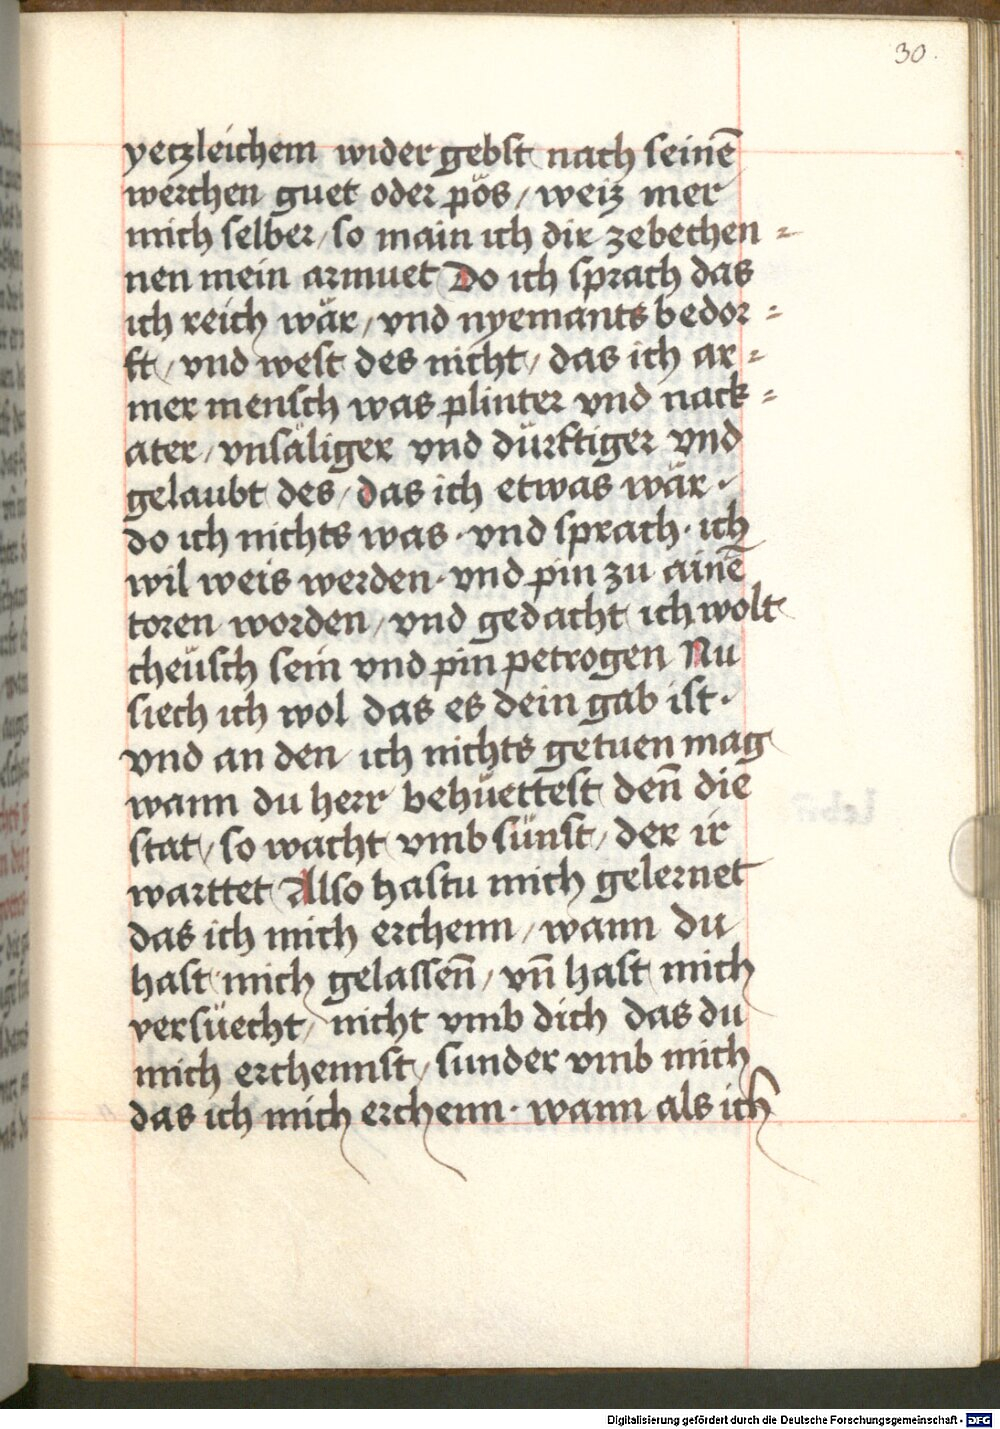 30.
yetzleichem wider gebst nach seinē
werchen guet oder pös / weiz mer
mich selber / so main ich dir zebechen =
nen mein armuet Do ich sprach das
ich reich wär / vnd nyemants bedor =
ft / vnd west des nicht / das ich ar =
mer mensch was plinter vnd nack =
ater / vnsäliger vnd dürftiger vnd
gelaubt des / das ich etwas wär ·
do ich nichts was · vnd sprach · ich
wil weis werden · vnd pin zu ainē
toren worden / vnd gedacht ich wolt
cheüsch sein vnd pin petrogen Nu
siech ich wol das es dein gab ist ·
vnd an den ich nichts getuen mag
wann du herr behüettest den̄ die
stat / so wacht vmb sünst / der ir
warttet Also hastu mich gelernet
das ich mich erchenn / wann du
hast mich gelassen̄ / vn̄ hast mich
versüecht / nicht vmb dich das du
mich erchennst / sunder vmb mich
das ich mich erchenn · wann als ich
Digitalisierung gefördert durch die Deutsche Forschungsgemeinschaft - DFG